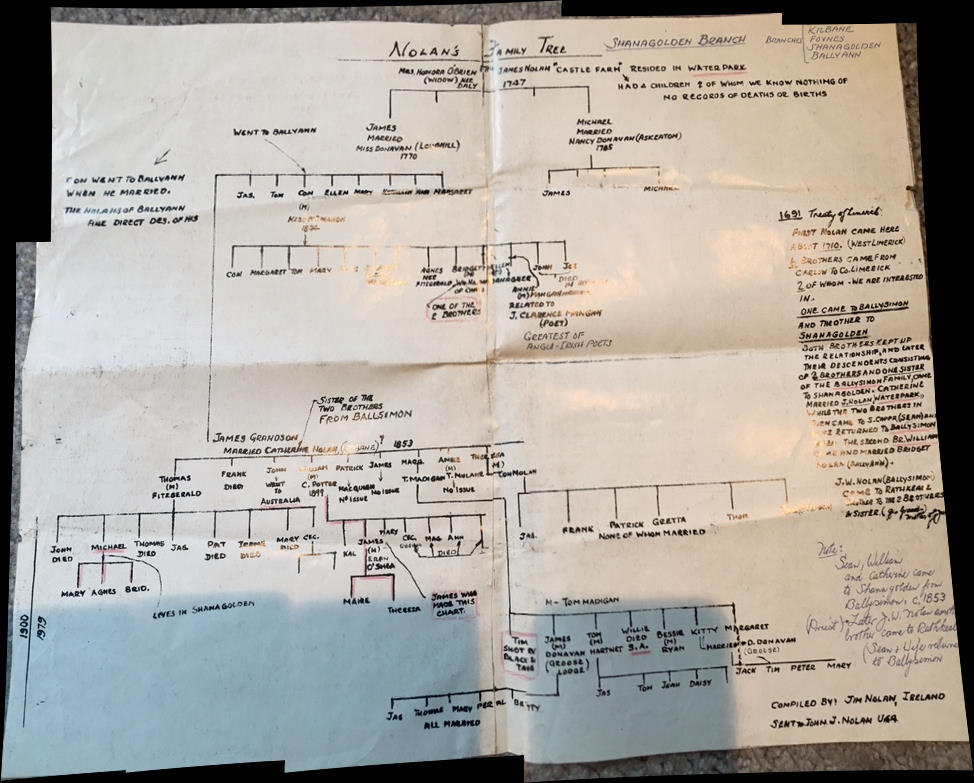 NOLAN'S FAMILY TREE
SHANAGOLDEN BRANCH
BRANCHES
KILBANE
FOYNES
SHANAGOLDEN
BALLYANN
MRS. HONORA O'BRIEN
(WIDOW) NEE
DALY
JAMES NOLAN "CASTLE FARM" RESIDED IN WATERPARK
1747
HAD 4 CHILDREN 2 OF WHOM WE KNOW NOTHING OF
NO RECORDS OF DEATHS OR BIRTHS
JAMES
MARRIED
MISS DONAVAN
1770
MICHAEL
MARRIED
NANCY DONAVAN (ASKEATON)
1785
WENT TO BALLYANN
JAMES MICHAEL
CON WENT TO BALLYANN
WHEN HE MARRIED.
THE NOLANS OF BALLYANN
ARE DIRECT DES. OF HIS
JAS. TOM CON ELLEN MARY ANN MARGARET
(M)
CON MARGARET TOM MARY
AGNES
NEE
FITZGERALD
BRIDGET
ELLEN
JOHN
DIED
ANNIE
(M) MANGAN
RELATED TO
J. CLARENCE MANGAN
(POET)
GREATEST OF
ANGLO-IRISH POETS
ONE OF THE
2 BROTHERS
1691 Treaty of Limerick:
FIRST NOLAN CAME HERE
ABOUT 1710. (WEST LIMERICK)
BROTHERS CAME FROM
CARLOW TO CO. LIMERICK
2 OF WHOM - WE ARE INTERESTED
IN.
ONE CAME TO BALLYSIMON
AND THE OTHER TO
SHANAGOLDEN
BOTH BROTHERS KEPT UP
THE RELATIONSHIP, AND LATER
THEIR DESCENDENTS CONSISTING
OF 2 BROTHERS AND ONE SISTER
OF THE BALLYSIMON FAMILY, CAME
TO SHANAGOLDEN. CATHERINE
MARRIED J. NOLAN, WATERPARK,
WHILE THE TWO BROTHERS IN
TURN CAME TO (SEAN) AND
RETURNED TO BALLYSIMON
THE SECOND BR. WILLIAM
CAME AND MARRIED BRIDGET
NOLAN (BALLYANN).
J.W. NOLAN (BALLYSIMON)
CAME TO RATHKEALE
BROTHER TO THE 2 BROTHERS
& SISTER
SISTER OF THE
TWO BROTHERS
FROM BALLSIMON
JAMES GRANDSON
MARRIED CATHERINE NOLAN ? 1853
THOMAS
(M)
FITZGERALD
FRANK
DIED
JOHN
WENT
TO
AUSTRALIA
WILLIAM
(M)
C. POTTER
1899
PATRICK
MACQUEEN
NO ISSUE
JAMES
NO ISSUE
MARG.
T. MADIGAN
(M)
NO ISSUE
(M)
CON NOLAN
JOHN
DIED
MICHAEL
THOMAS
DIED
JAS.
PAT
DIED
DIED
MARY
DIED
CEC.
MARY AGNES BRID.
LIVES IN SHANAGOLDEN
JAMES
(M)
O'SHEA
MARY
CEC.
MAG
ANN
DIED
MAIRE
THERESA
JAMES WHO
MADE THIS
CHART.
JAS. FRANK PATRICK GRETTA THOM
NONE OF WHOM MARRIED
1900
1979
M - TOM MADIGAN
TIM
SHOT BY
BLACK &
TANS
JAMES
(M)
DONAVAN
(GROOSE)
LODGE
TOM
(M)
HARTNET
WILLIE
DIED
S.A.
BESSIE
(M)
RYAN
KITTY
MARGARET
MARRIED
D. DONAVAN
(GROOSE)
JACK TIM PETER MARY
JAS TOM JEAN DAISY
JAS THOMAS MARY PER AL BETTY
ALL MARRIED
Note:
Sean, William
and Catherine came
to Shanagolden from
Ballysimon, C. 1853
(Priest) Later J.W. Nolan another
brother came to Rathkeale
(Sean & Wife returned
to Ballysimon
COMPILED BY: JIM NOLAN, IRELAND
SENT TO JOHN J. NOLAN USA